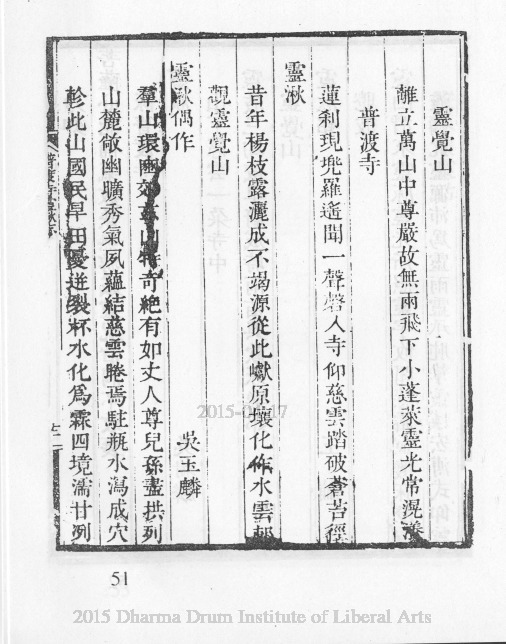 靈覺山
離立萬山中尊嚴故無兩飛下小蓬萊靈光常滉瀁
普渡寺
蓮剎現兜羅遙聞一聲磬入寺仰慈雲踏破蒼苔徑
靈湫
昔年楊枝露灑成不竭源從此巘原壤化作水雲邨
觀靈覺山
靈湫偶作 吳玉麟
羣山環幽郊茲山特奇絕有如丈人尊兒孫盡拱列
山麓敞幽曠秀氣夙蘊結慈雲睠焉駐瓶水瀉成穴
軫此山國民旱田憂迸裂杯水化爲霖四境濡甘冽
普渡寺
51
2015-01-17
2015 Dharma Drum Institute of Liberal Arts